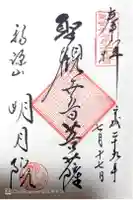 奉拝
平成二十九年
七月十七日
聖観世音菩薩
福源山
明月院